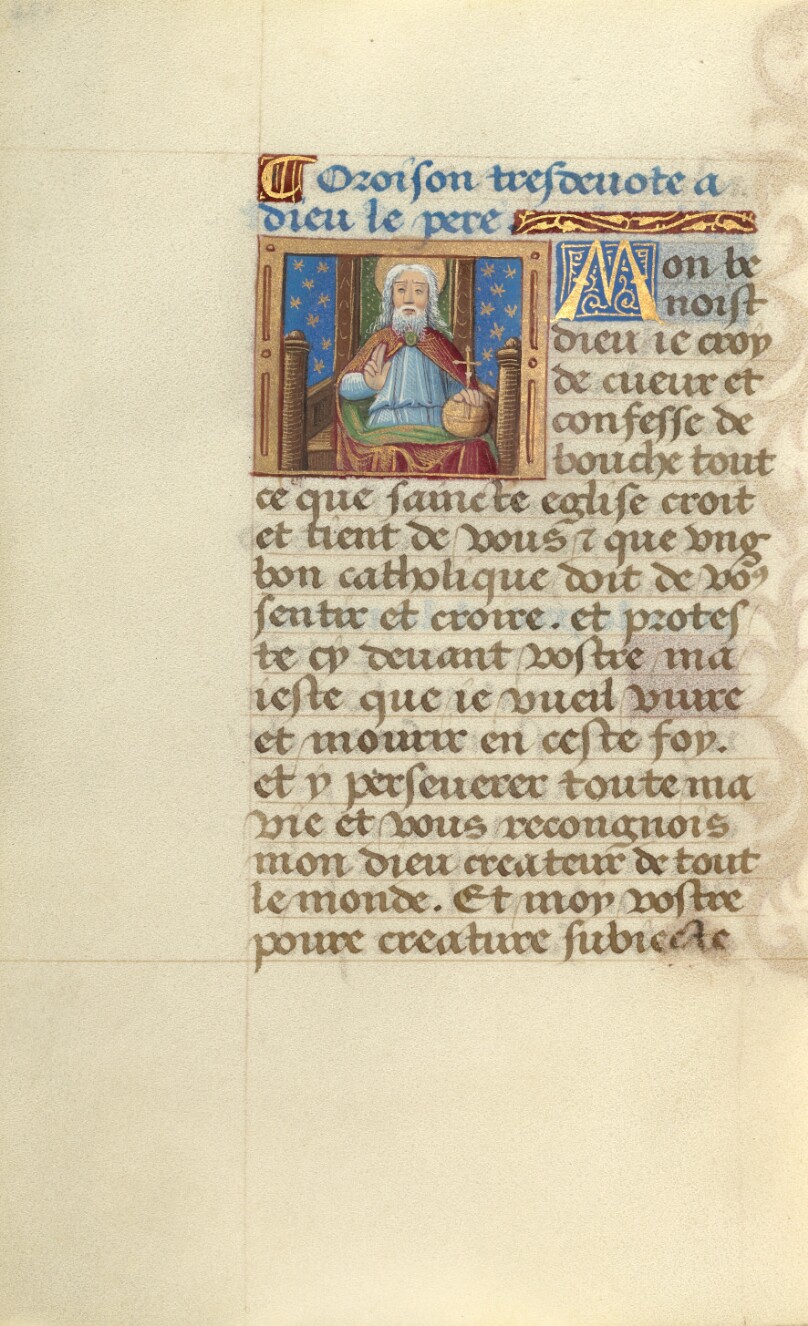 Oroison tresdeuote a
dieu le pere
Mon be
noist
dieu ie croy
de cueur et
confesse de
bouche tout
ce que saincte eglise croit
et tient de vous ⁊ que vng
bon catholique doit de voꝰ
sentir et croire. et protes
te cy deuant vostre ma
ieste que ie vueil viure
et mourir en ceste foy.
et y perseuerer toute ma
vie et vous recongnois
mon dieu createur de tout
le monde. Et moy vostre
poure creature subiecte